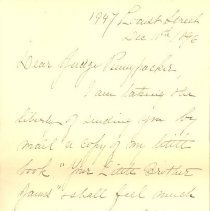 1947 Locust Street
Dec 11th 1896
Dear Judge Pennypacker,
I am taking the
liberty of sending you by
mail a copy of my little
book "Our Little Brother
shall feel much